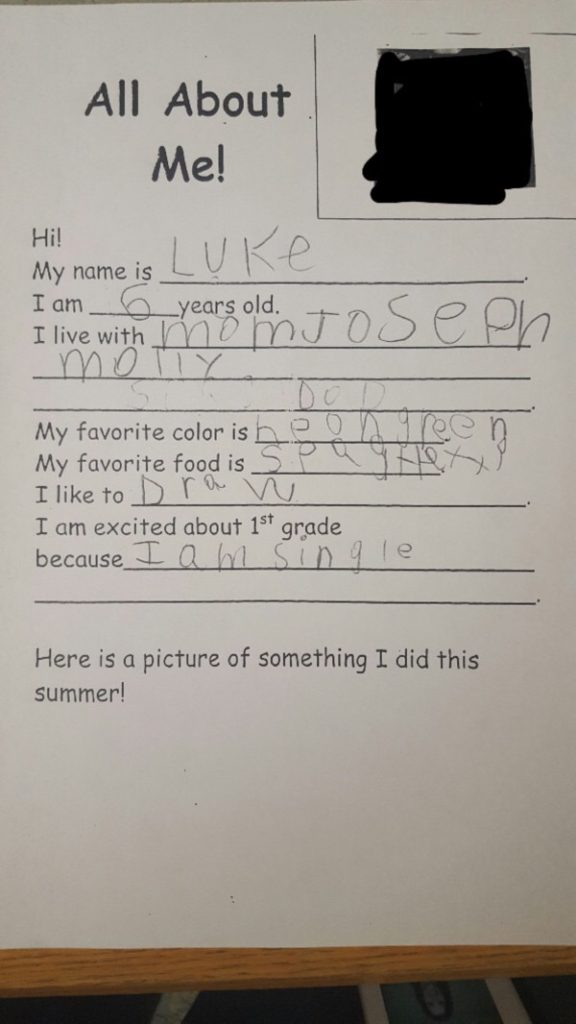 All About
Me!
Hi!
My name is LUKe.
I am 6 years old.
I live with mom JoSePh
mollY
DOD.
My favorite color is neon green
My favorite food is
I like to DraW.
I am excited about 1st grade
because I am single
Here is a picture of something I did this
summer!